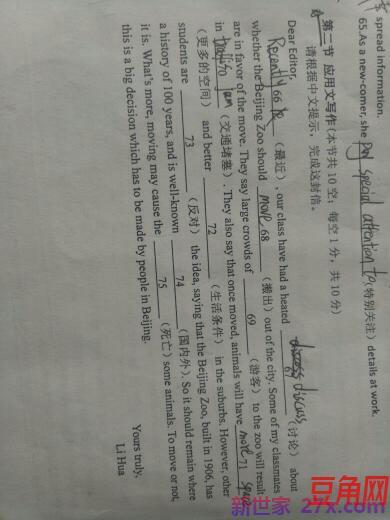 spread information.
65. As a new-comer, she pay special attention to (特别关注) details at work.
第二节 应用文写作(本节共 10 空；每空 1 分，共 10 分)
请根据中文提示，完成这封信。
Dear Editor,
Recently 66 (最近) , our class have had a heated discuss 67 (讨论) about
whether the Beijing Zoo should move 68 (搬出) out of the city. Some of my classmates
are in favor of the move. They say large crowds of 69 (游客) to the zoo will result
in traffic jam (交通堵塞) . They also say that once moved, animals will have more 71 space
(更多的空间) and better 72 (生活条件) in the suburbs. However, other
students are 73 (反对) the idea, saying that the Beijing Zoo, built in 1906, has
a history of 100 years, and is well-known 74 (国内外). So it should remain where
it is. What's more, moving may cause the 75 (死亡) some animals. To move or not,
this is a big decision which has to be made by people in Beijing.
Yours truly,
Li Hua
豆角网
新世家 27x.com